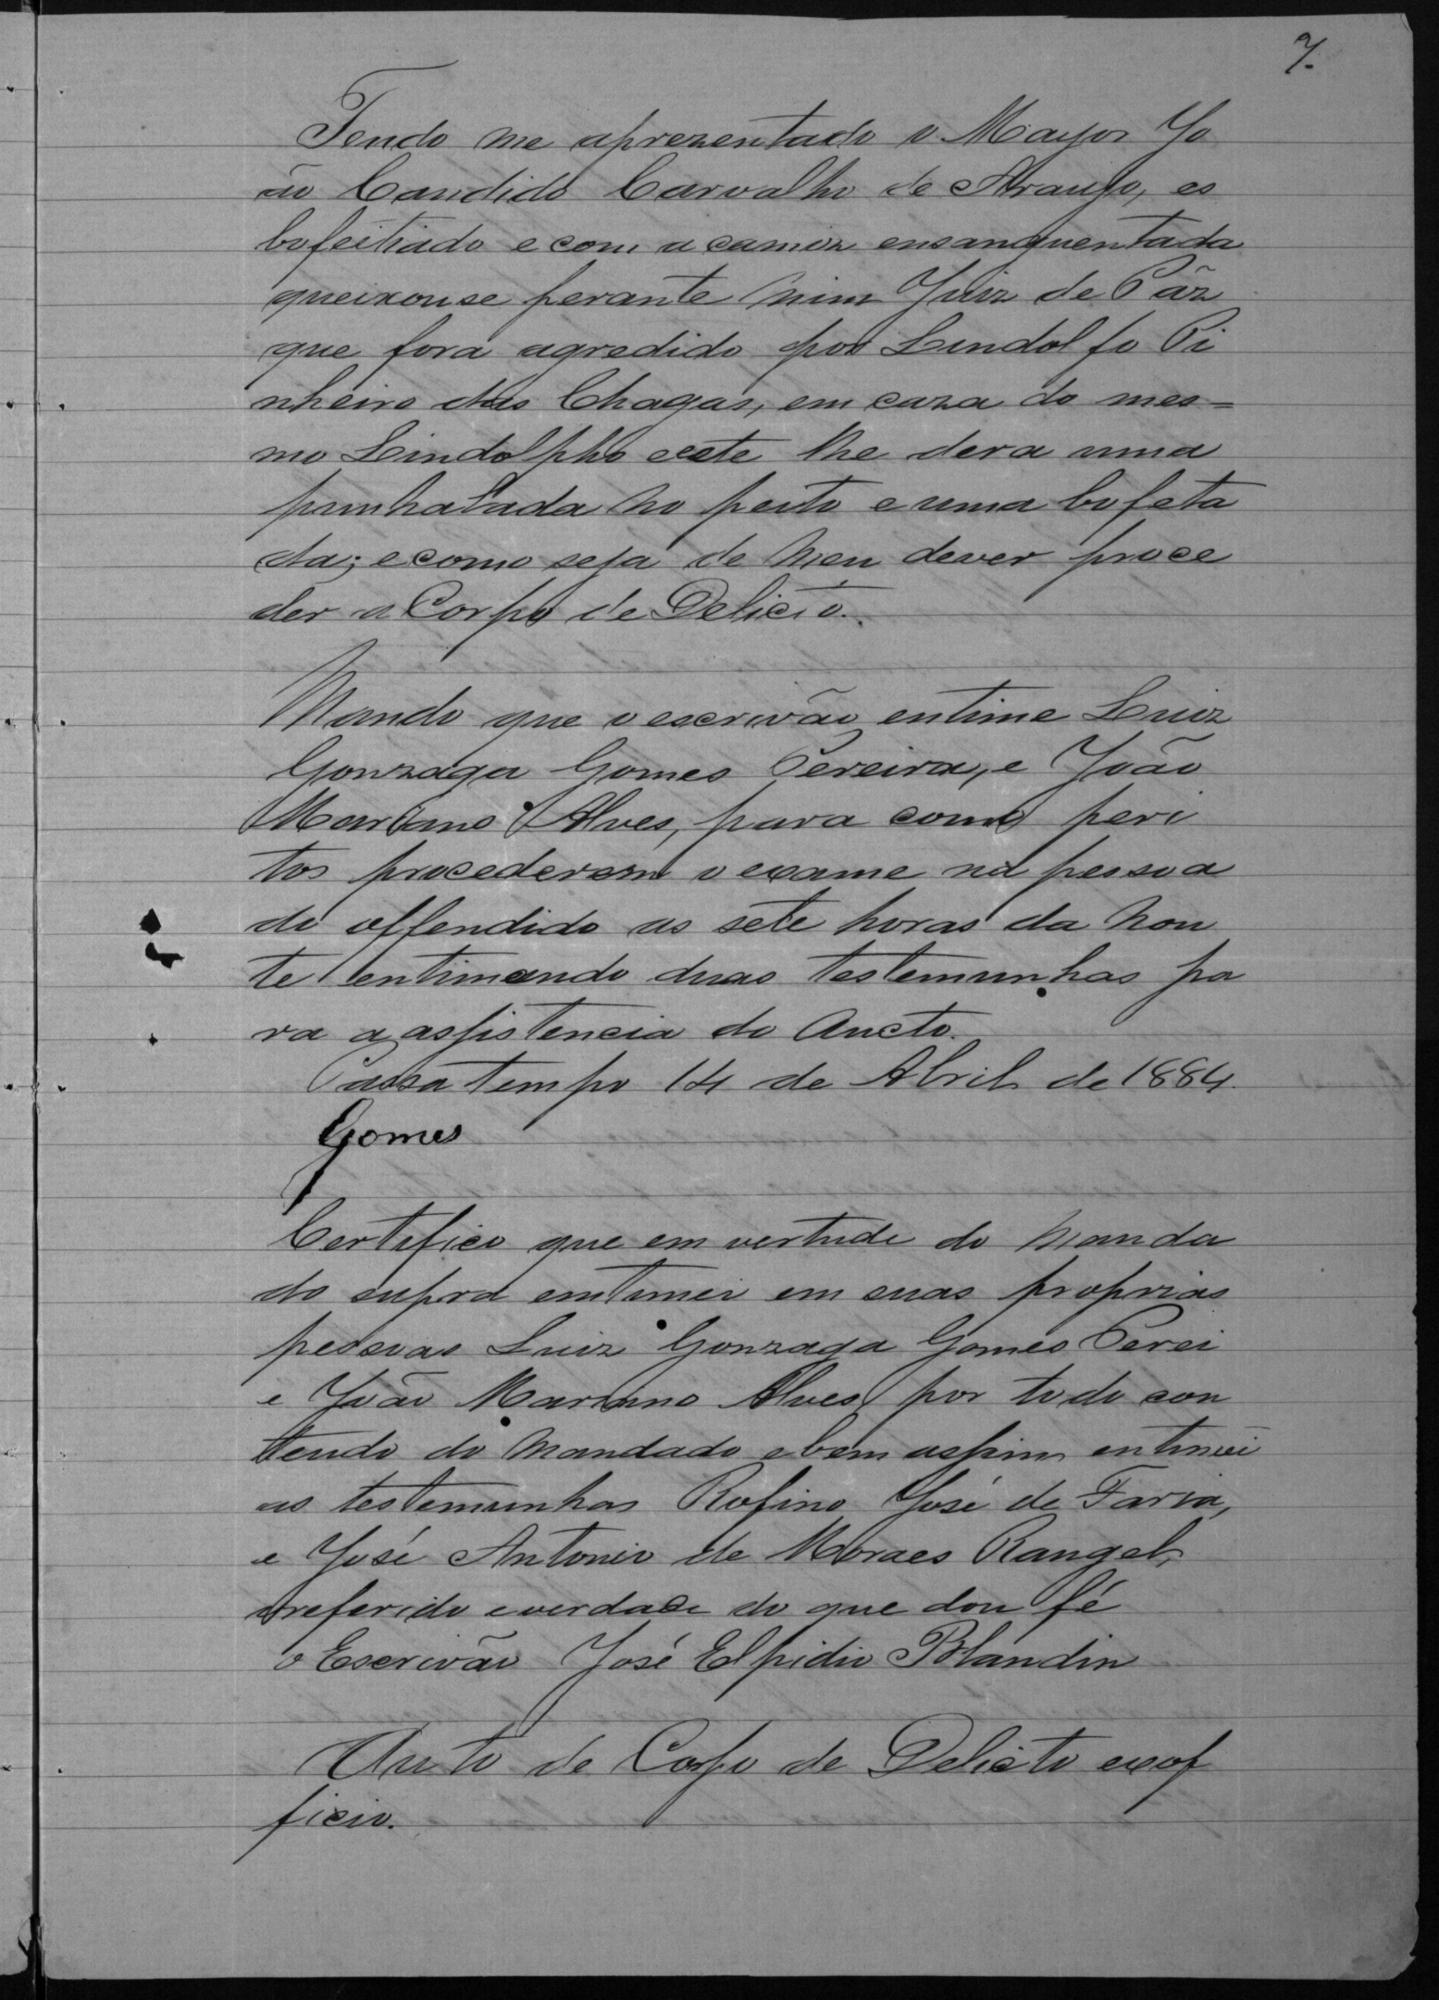 7.
Tendo me aprezentado o Mayor Jo
ão Candido Carvalho de Araujo, es
bofeitiado e com a camiza ensanguentada
queixouse perante mim Juiz de Páz
que fora agredido por Lindolfo Pi
nheiro das Chagas, em caza do mes=
mo Lindolpho e este lhe dera uma
punhalada no peito e uma bofeta
da; e como seja de meu dever proce
der a Corpo de Delicto.
Mando que o escrivão entime Luiz
Gonzaga Gomes Pereira, e João
Mariano Alves, para como peri
tos procederem o exame na pessoa
do offendido as sete horas da nou
te entimando duas testemunhas pa
ra a assistencia do Aucto.
Passa tempo 14 de Abril de 1884.
Gomes
Certefico que em vertude do manda
do supra emtimei em suas proprias
pessoas Luiz Gonzaga Gomes Perei
e João Mariano Alves por todo con
teudo do mandado e bem assim entimei
as testemunhas Rofino José de Faria,
e José Antonio de Moraes Rangel,
o referido e verdade do que dou fé
o Escrivão José Elpidio Blandin
Auto de Corpo de Delicto exof
ficio.